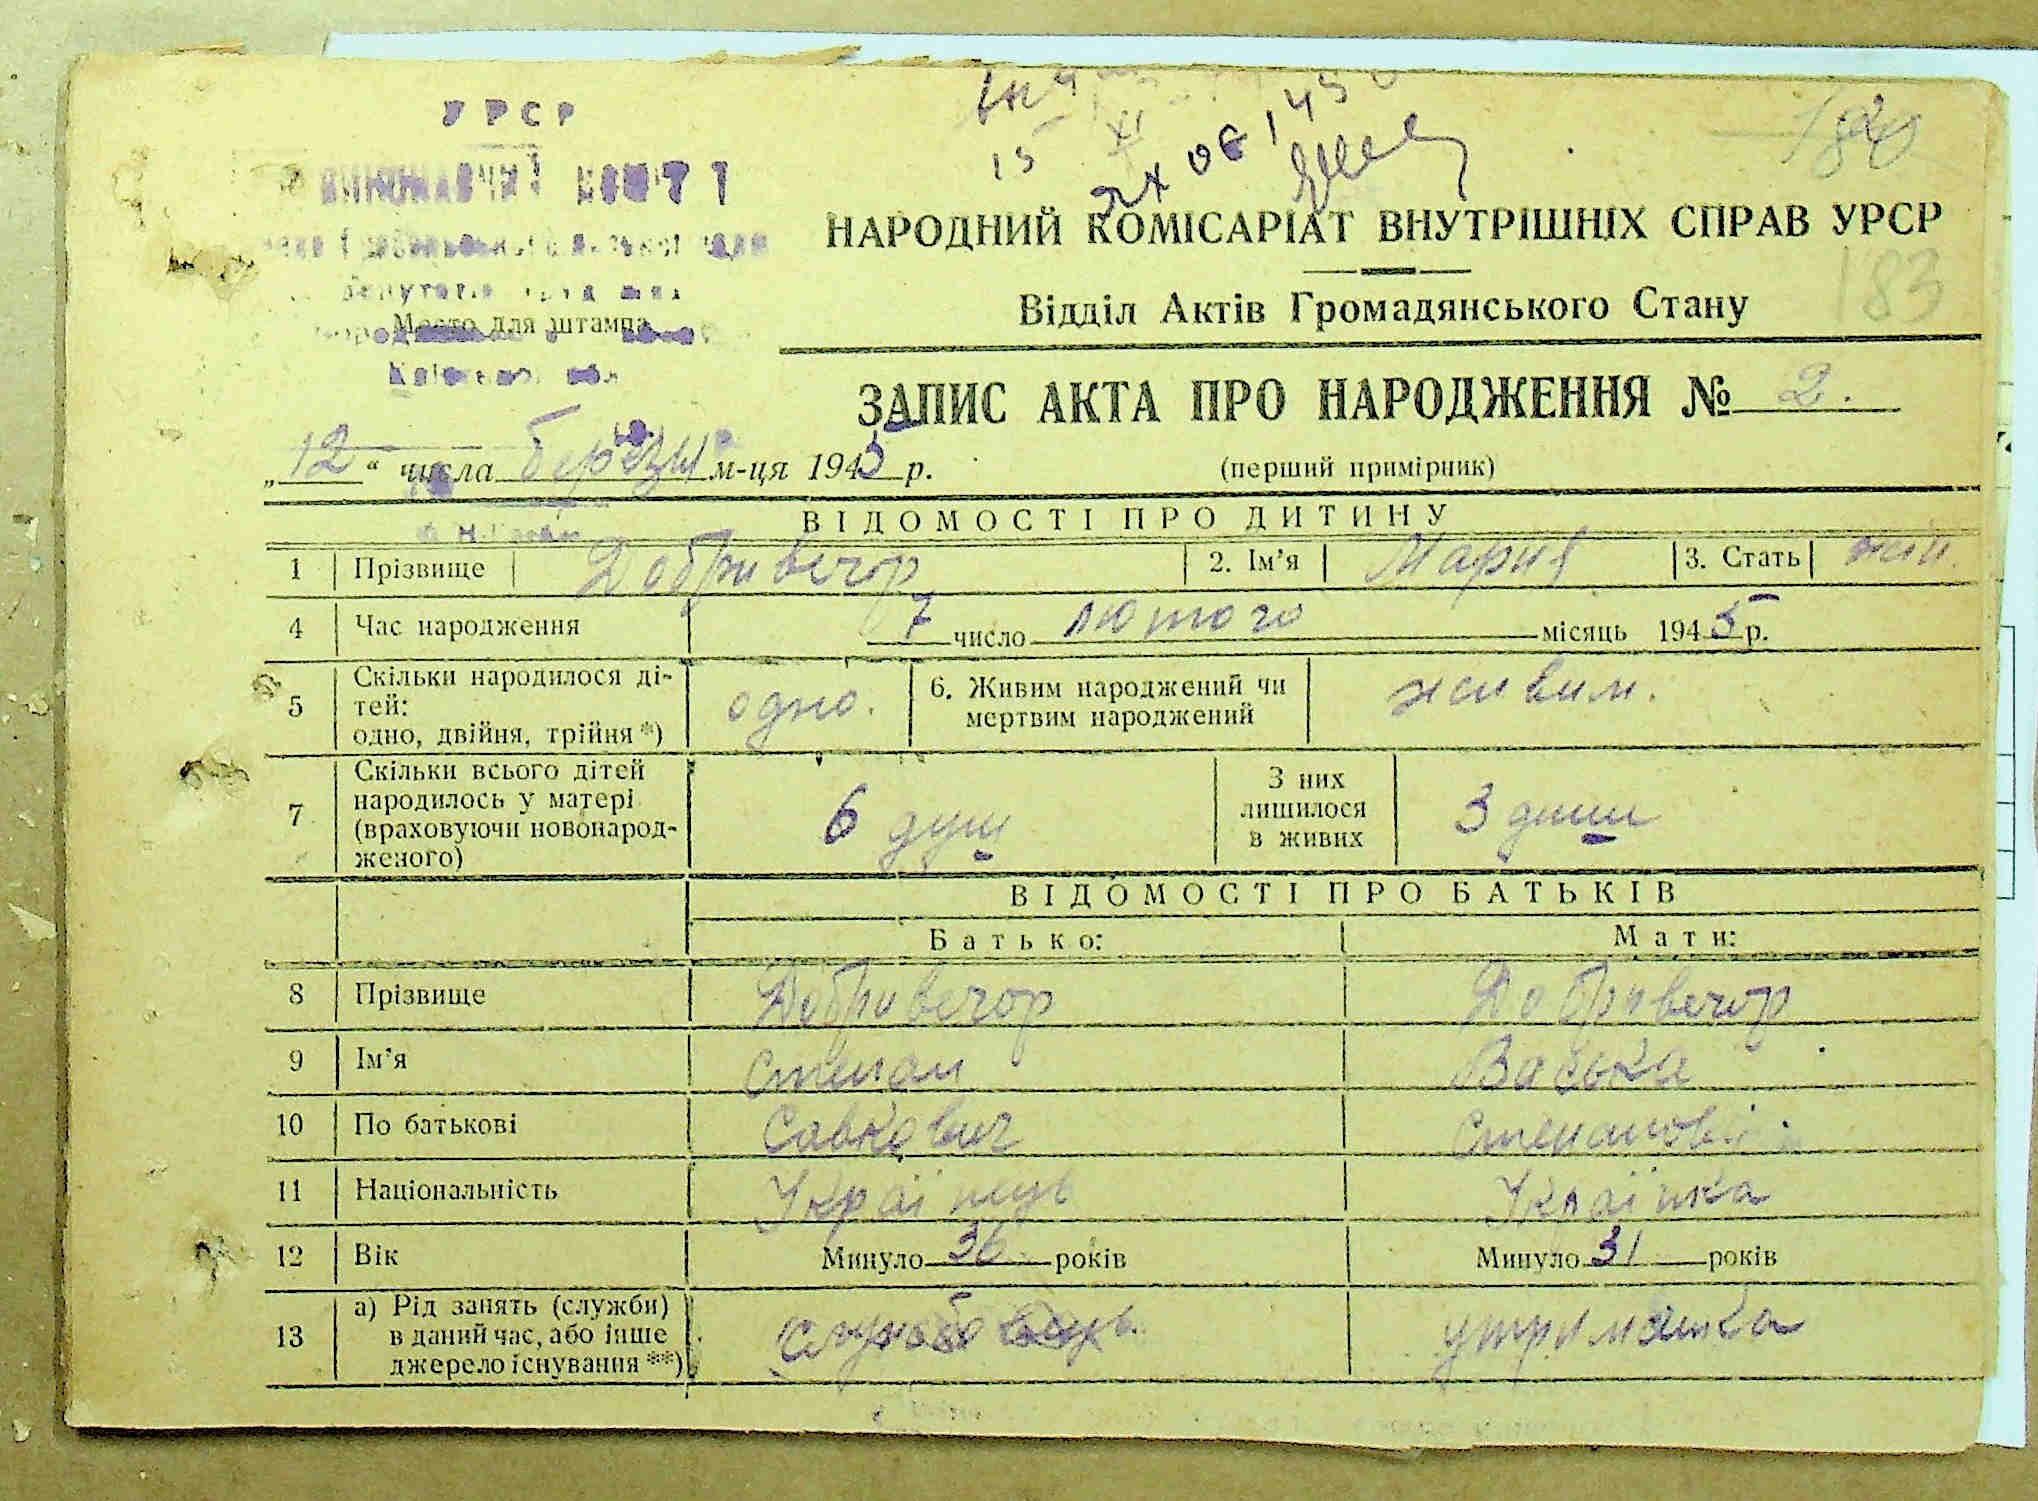 УРСР
ВИКОНАВЧИЙ КОМІТЕТ
Место для штампа
182
183
НАРОДНИЙ КОМІСАРІАТ ВНУТРІШНІХ СПРАВ УРСР
Відділ Актів Громадянського Стану
ЗАПИС АКТА ПРО НАРОДЖЕННЯ № 2.
„12“ числа березня м-ця 1945 р. (перший примірник)
ВІДОМОСТІ ПРО ДИТИНУ
1 Прізвище Добривечор 2. Ім’я Мария 3. Стать жін.
4 Час народження 7 число лютого місяць 1945 р.
5 Скільки народилося ді-
тей:
одно, двійня, трійня *) одно. 6. Живим народжений чи
мертвим народжений живим.
7 Скільки всього дітей
народилось у матері
(враховуючи новонарод-
женого) 6 душ З них
лишилося
в живих 3 души
ВІДОМОСТІ ПРО БАТЬКІВ
Батько: Мати:
8 Прізвище Добривечор Добривечор
9 Ім’я Степан Васька
10 По батькові Савкович Степанові
11 Національність Українць Українка
12 Вік Минуло 36 років Минуло 31 років
13 а) Рід занять (служби)
в даний час, або інше
джерело існування **) службовець. утриманка